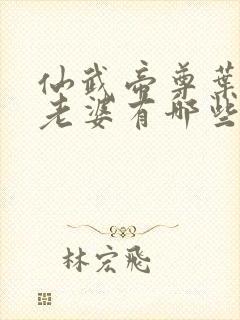 仙武帝尊葉
老婆有哪些
林宏飛